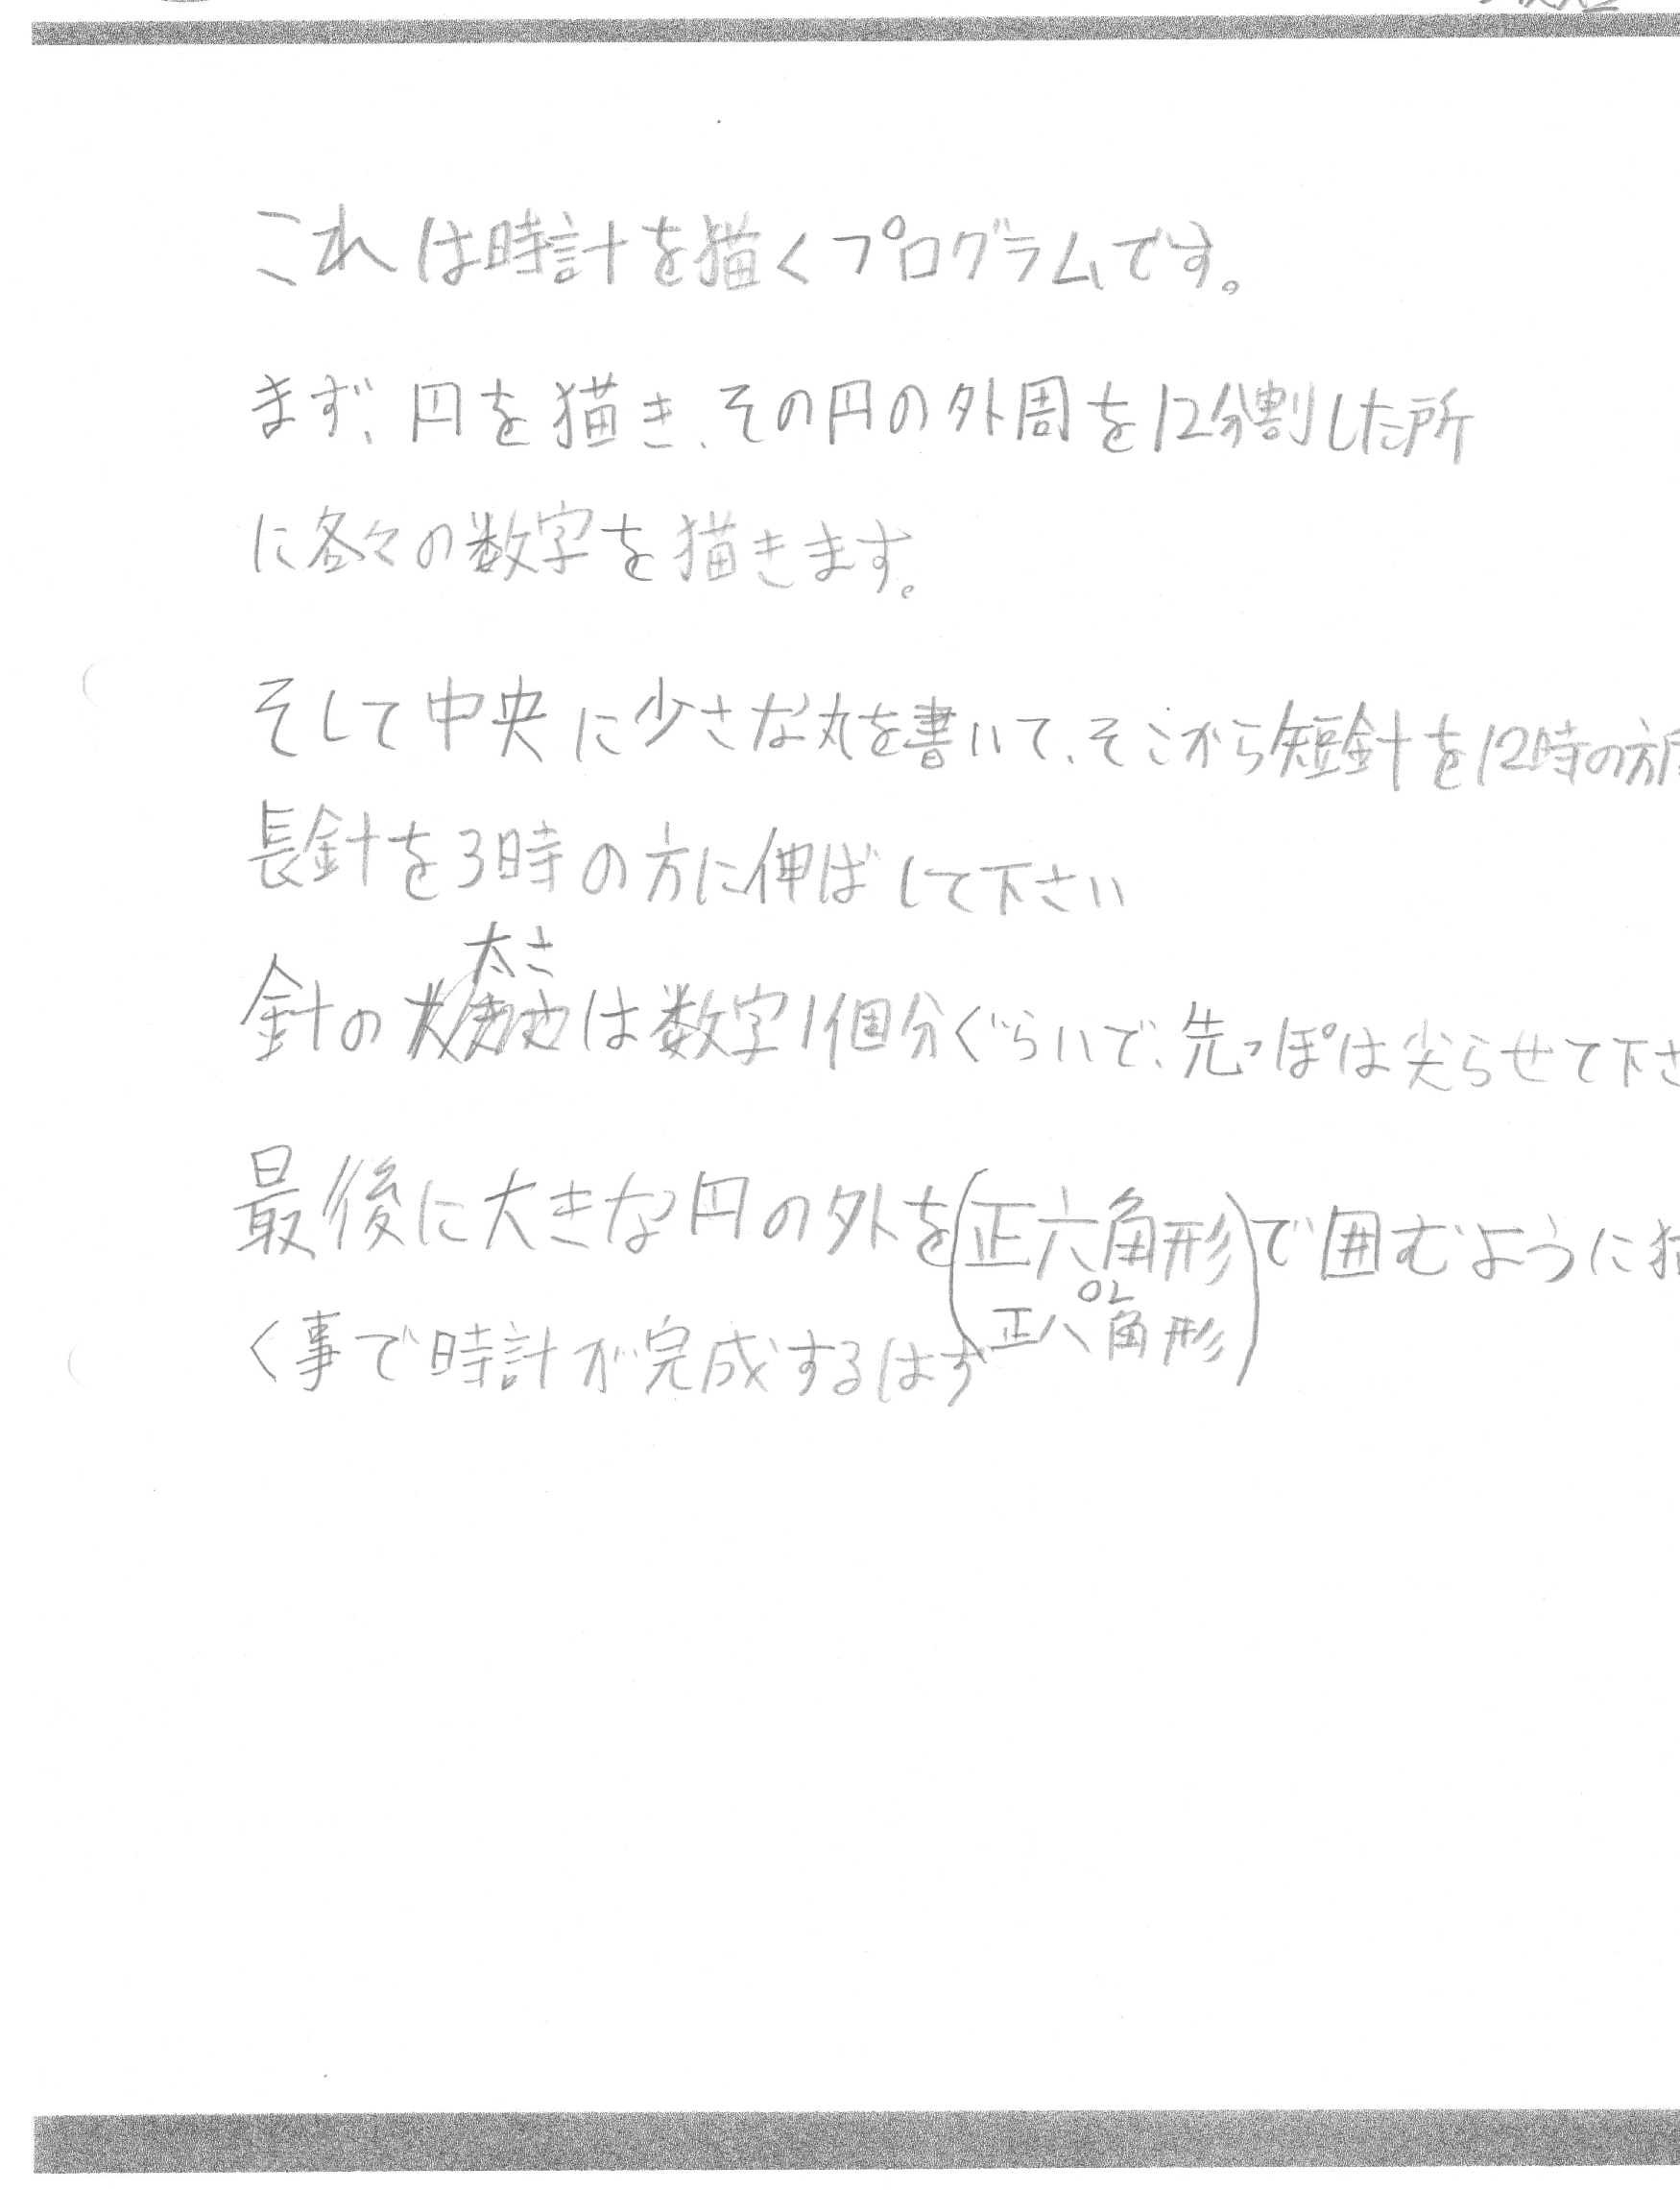 これは時計を描くプログラムです。
まず、円を描き、その円の外周を12分割した所
に各々の数字を描きます。
そして中央に少さな丸を書いて、そこから短針を12時の方
長針を3時の方に伸ばして下さい
太さ
針の は数字1個分ぐらいで、先っぽは尖らせて下さ
最後に大きな円の外を(正六角形)で囲むように描
or
正八角形
く事で時計が完成するはず